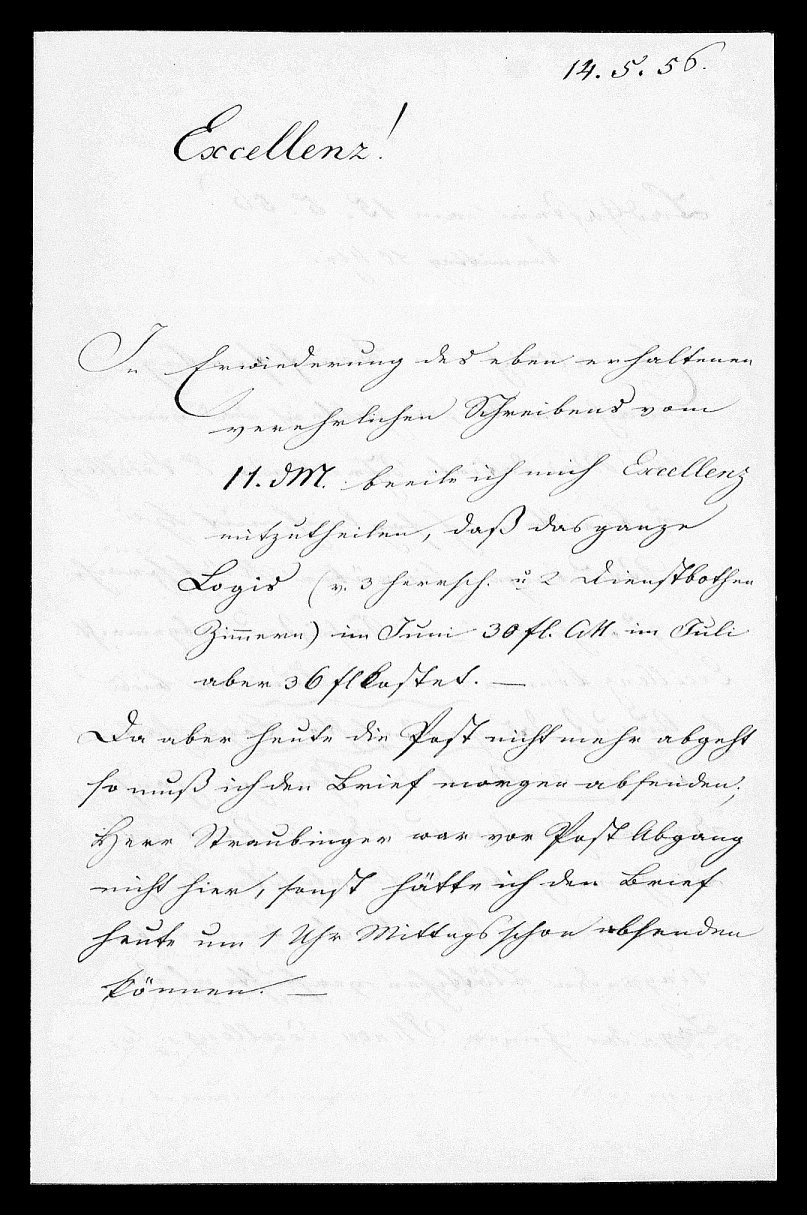 14. 5. 56.
Excellenz!
In Erwiederung des eben erhaltenen
verehrlichen Schreibens vom
11. dM. beeile ich mich Excellenz
mitzutheilen, daß das ganze
Logis (v. 3 herrsch. u 2 Dienstbothen
Zimmern) im Juni 30 fl. CM im Juli
aber 36 fl kostet. —
Da aber heute die Post nicht mehr abgeht
so muß ich den Brief morgen absenden;
Herr Straubinger war vor Post Abgang
nicht hier, sonst hätte ich den Brief
heute um 1 Uhr Mittags schon absenden
können. —